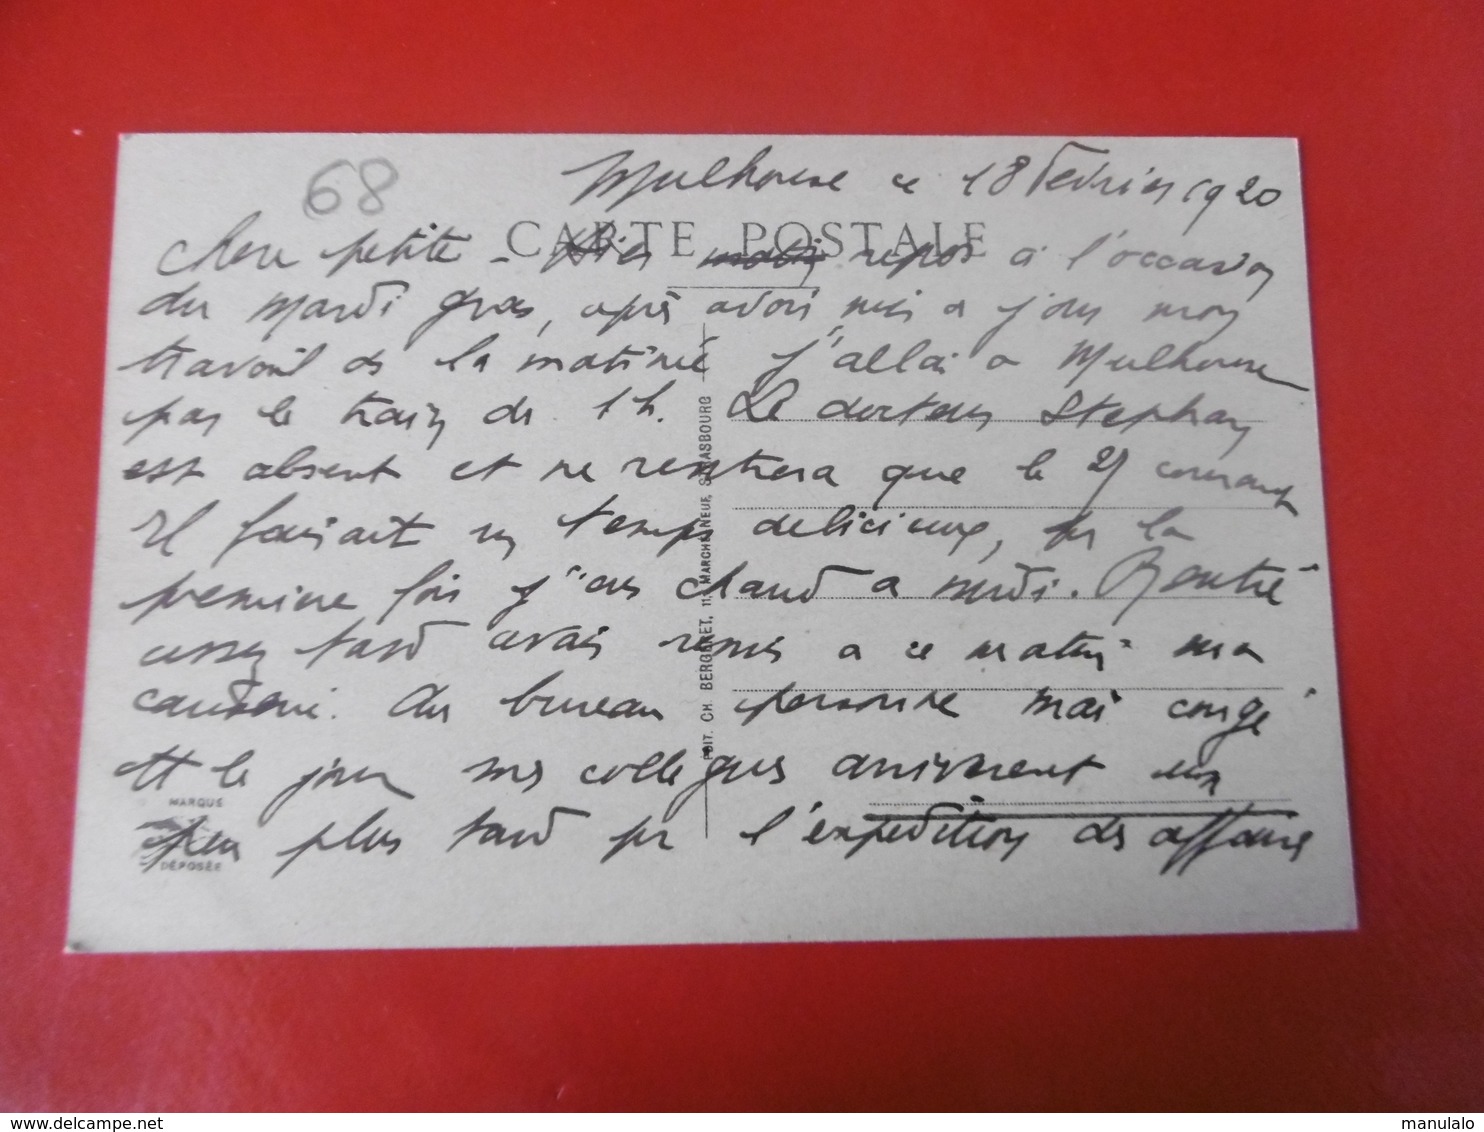 68
Mulhouse ce 18 Fevrier 1920
CARTE POSTALE
Chere petite - Hier matin repos à l'occasion
du Mardi gras, après avoir mis a jour mon
travail de la matinée j'allai a Mulhouse
par le train de 1 h. Le docteur Stephan
est absent et ne rentrera que le 25 courant
Il faisait un temps delicieux, pr la
premiere fois j'eus chaud a midi. Rentré
assez tard avais remis a ce matin ma
causerie. Au bureau personne mai congé
tt le jour mes collegues arriverent un
peu plus tard pr l'expedition des affaires
MARQUE
DÉPOSÉE
EDIT. CH. BERGERET, 11, MARCHÉ NEUF, STRASBOURG
delcampe.net
manulalo